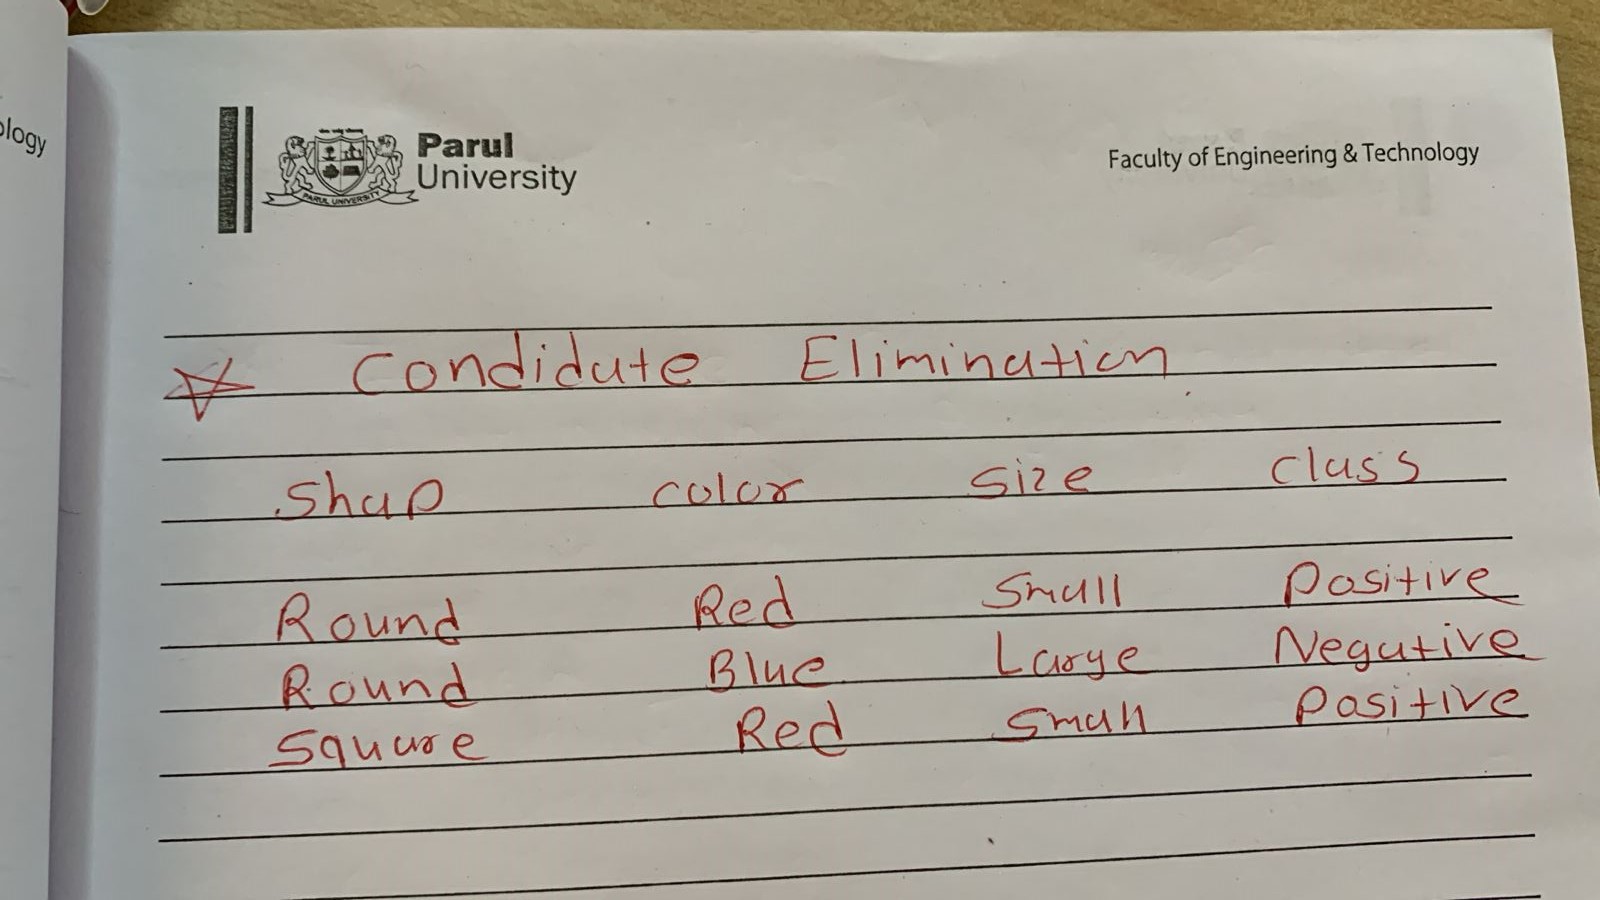 ology
Parul
University
PARUL UNIVERSITY
Faculty of Engineering & Technology
Condidate Elimination
Shap color Size class
Round Red Small Positive
Round Blue Large Negative
Square Red Small Positive